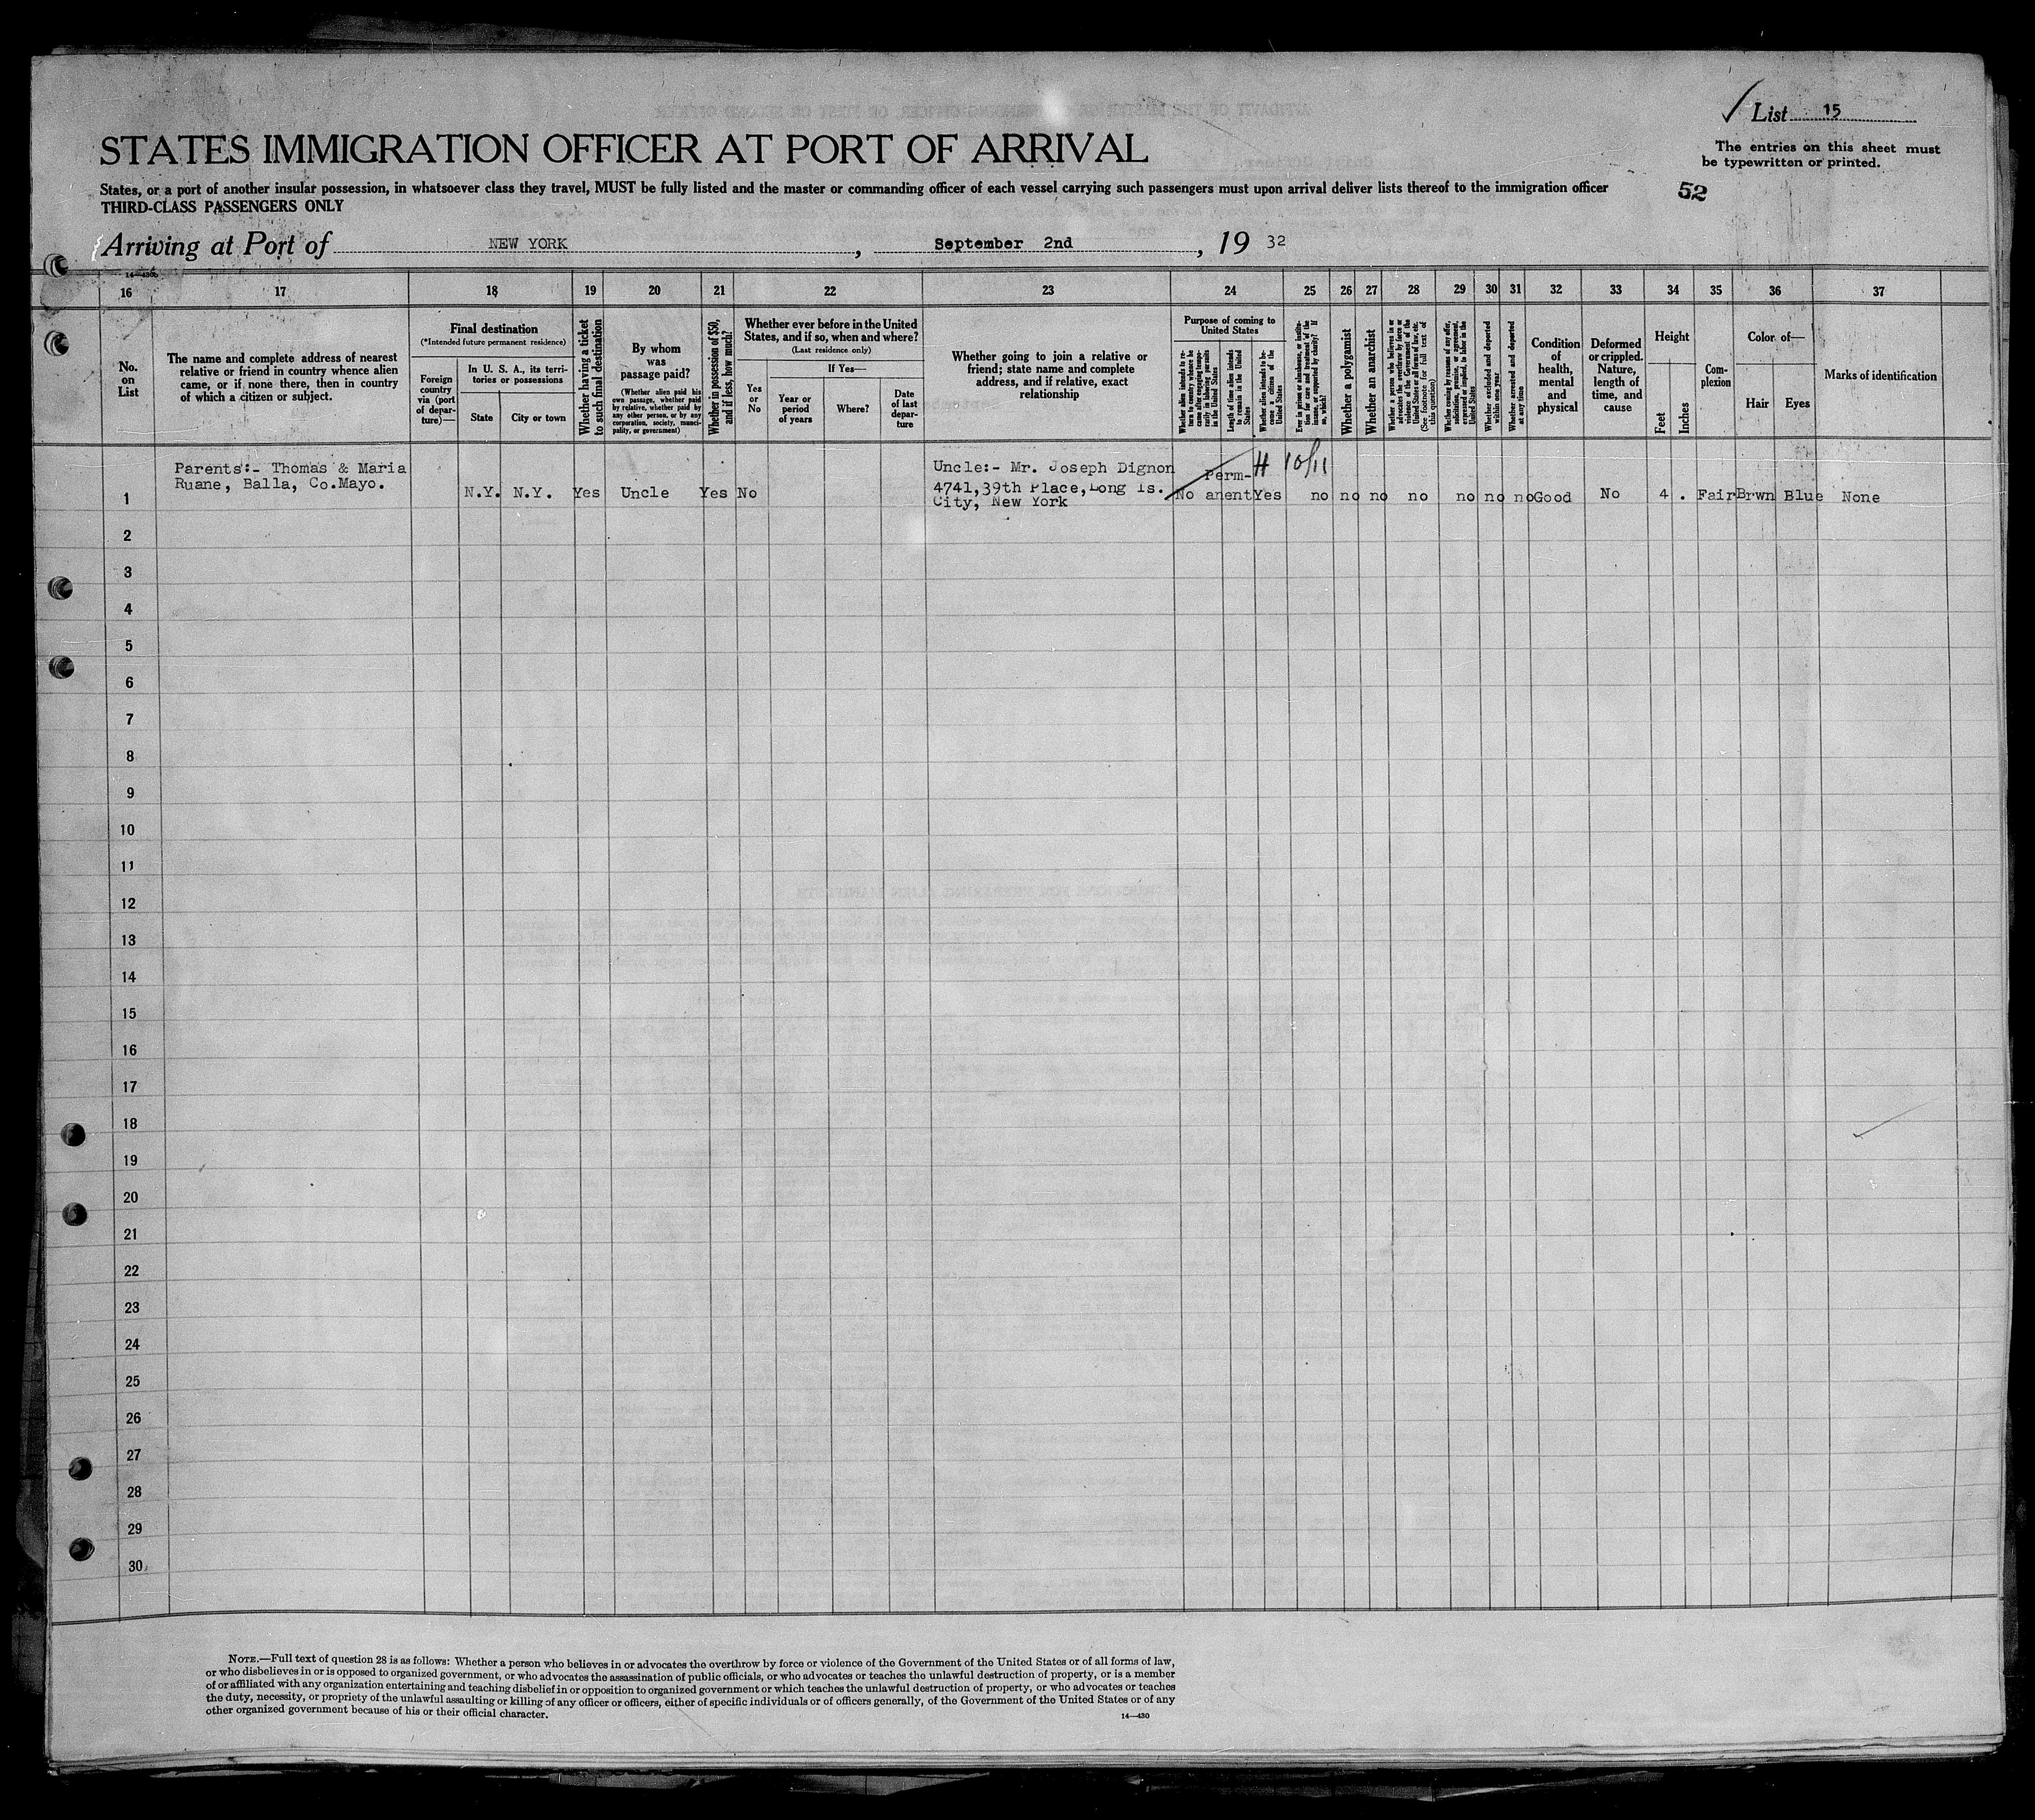 List 15
STATES IMMIGRATION OFFICER AT PORT OF ARRIVAL
The entries on this sheet must
be typewritten or printed.
States, or a port of another insular possession, in whatsoever class they travel, MUST be fully listed and the master or commanding officer of each vessel carrying such passengers must upon arrival deliver lists thereof to the immigration officer
THIRD-CLASS PASSENGERS ONLY
52
Arriving at Port of NEW YORK, September 2nd, 19 32
14—430b
16 17 18 19 20 21 22 23 24 25 26 27 28 29 30 31 32 33 34 35 36 37
No.
on
List
The name and complete address of nearest
relative or friend in country whence alien
came, or if none there, then in country
of which a citizen or subject.
Final destination
(*Intended future permanent residence)
Foreign
country
via (port
of depar-
ture)—
In U. S. A., its terri-
tories or possessions
State
City or town
Whether having a ticket
to such final destination
By whom
was
passage paid?
(Whether alien paid his
own passage, whether paid
by relative, whether paid by
any other person, or by any
corporation, society, munici-
pality, or government)
Whether in possession of $50,
and if less, how much?
Whether ever before in the United
States, and if so, when and where?
(Last residence only)
Yes
or
No
If Yes—
Year or
period
of years
Where?
Date
of last
depar-
ture
Whether going to join a relative or
friend; state name and complete
address, and if relative, exact
relationship
Purpose of coming to
United States
Whether alien intends to re-
turn to country whence he
came after engaging tempo-
rarily in laboring pursuits
in the United States
Length of time alien intends
to remain in the United
States
Whether alien intends to be-
come a citizen of the
United States
Ever in prison or almshouse, or institu-
tion for care and treatment of the
insane, or supported by charity? If
so, which?
Whether a polygamist
Whether an anarchist
Whether a person who believes in or
advocates the overthrow by force or
violence of the Government of the
United States or all forms of law, etc.
(See footnote for full text of
this question)
Whether coming by reason of any offer,
solicitation, promise, or agreement,
expressed or implied, to labor in the
United States
Whether excluded and deported
within one year
Whether arrested and deported
at any time
Condition
of
health,
mental
and
physical
Deformed
or crippled.
Nature,
length of
time, and
cause
Height
Feet
Inches
Com-
plexion
Color of—
Hair
Eyes
Marks of identification
1
Parents:- Thomas & Maria
Ruane, Balla, Co.Mayo.
N.Y. N.Y. Yes Uncle Yes No
Uncle:- Mr. Joseph Dignon
4741,39th Place,Long Is.
City, New York
No
Perm-
anent
Yes
H 10/11
no no no no no no no Good No 4 . Fair Brwn Blue None
2
3
4
5
6
7
8
9
10
11
12
13
14
15
16
17
18
19
20
21
22
23
24
25
26
27
28
29
30
NOTE.—Full text of question 28 is as follows: Whether a person who believes in or advocates the overthrow by force or violence of the Government of the United States or of all forms of law,
or who disbelieves in or is opposed to organized government, or who advocates the assassination of public officials, or who advocates or teaches the unlawful destruction of property, or is a member
of or affiliated with any organization entertaining and teaching disbelief in or opposition to organized government or which teaches the unlawful destruction of property, or who advocates or teaches
the duty, necessity, or propriety of the unlawful assaulting or killing of any officer or officers, either of specific individuals or of officers generally, of the Government of the United States or of any
other organized government because of his or their official character.
14—430